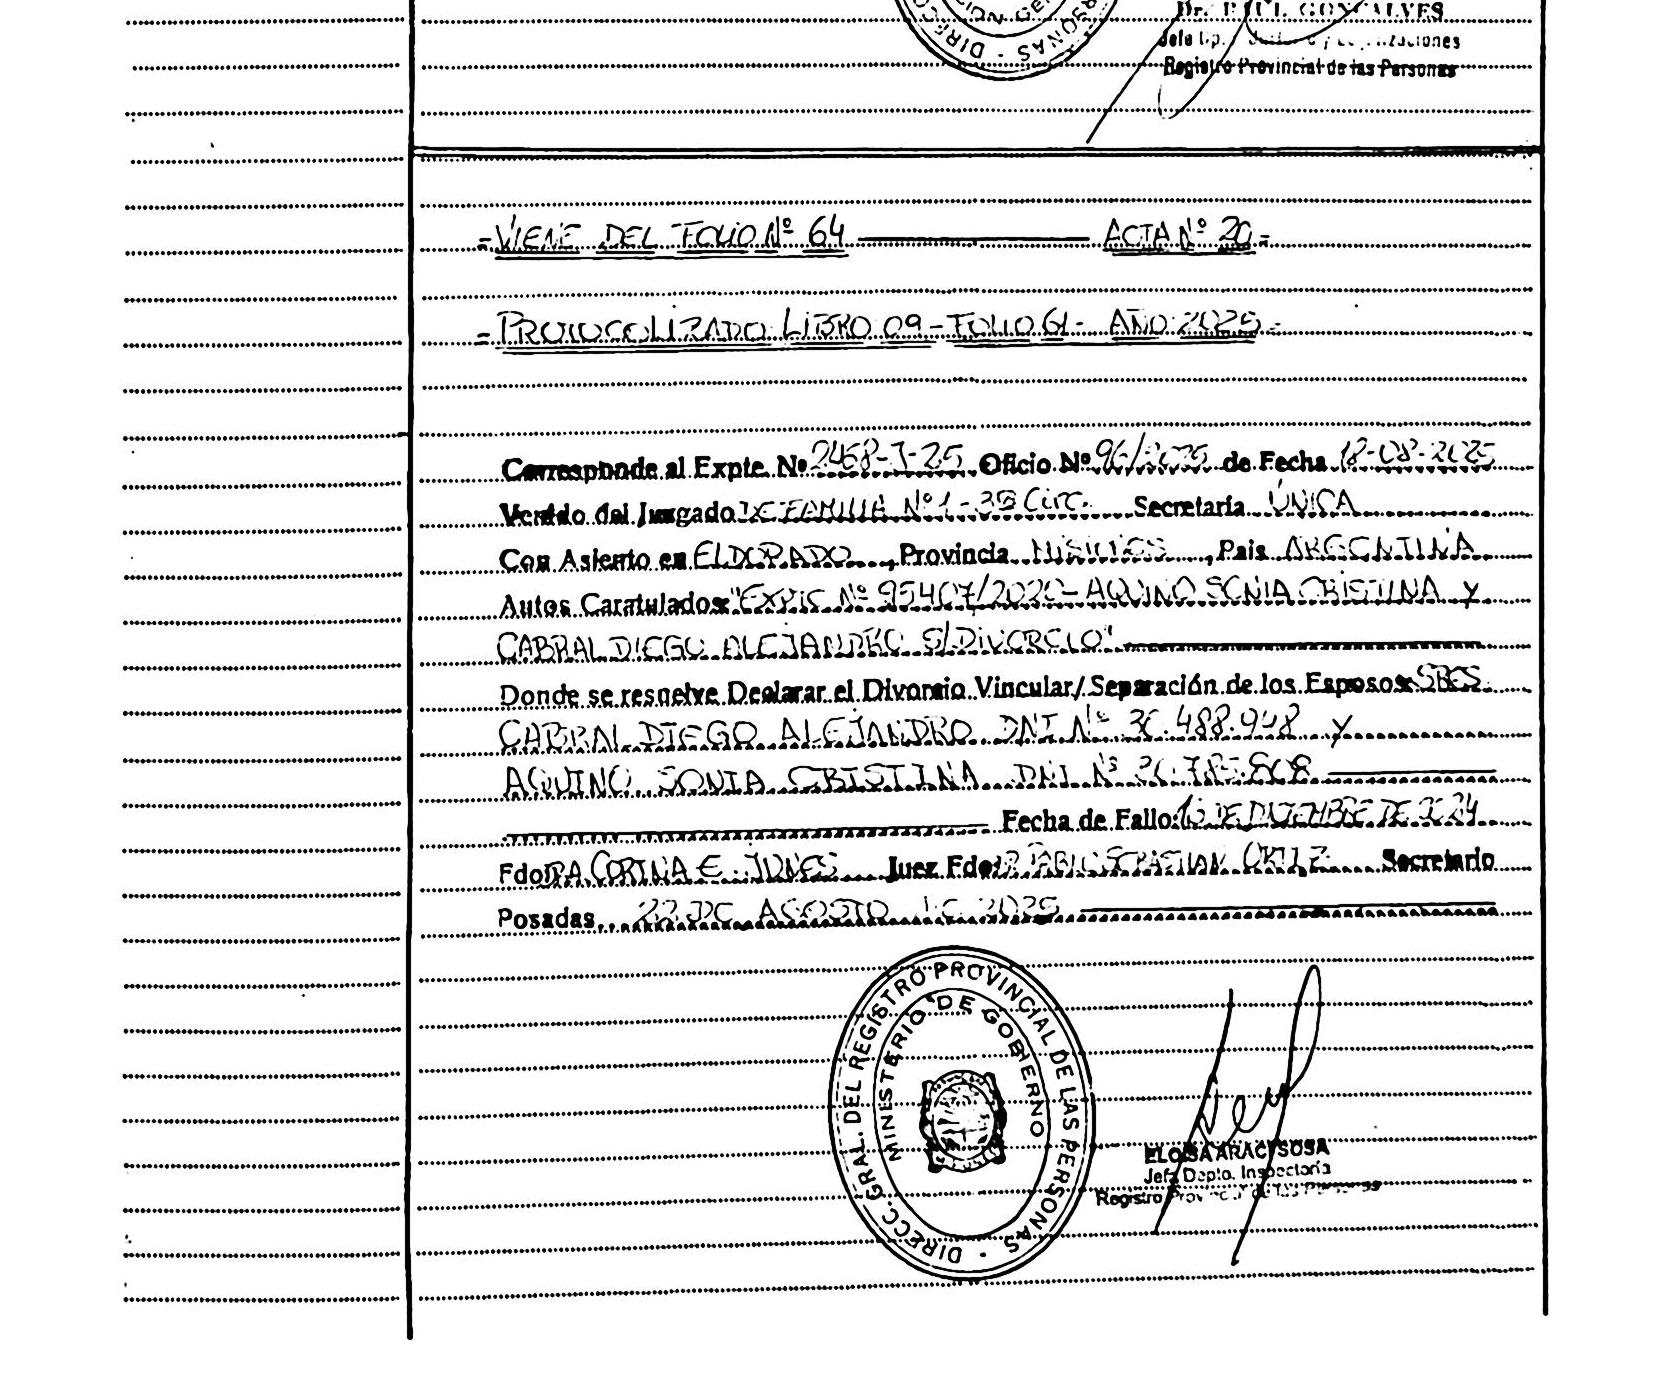 DIRECC
PERSONAS -
Dr. RAUL GONCALVES
Jefe Dp.
Registro Provincial de las Personas
= VIENE DEL FOLIO Nº 64 ——— ACTA Nº 20 =
= PROTOCOLIZADO LIBRO 09 - FOLIO 61 - AÑO 2025 =
Corresponde al Expte. Nº 2468-J-25 Oficio Nº 96/2025 de Fecha 18-08-2025
Venido del Juzgado DE FAMILIA Nº 1 - 3ª Circ. Secretaría ÚNICA
Con Asiento en ELDORADO, Provincia MISIONES, Pais ARGENTINA
Autos Caratulados: "EXPTE Nº 95407/2020 - AQUINO SONIA CRISTINA y
CABRAL DIEGO ALEJANDRO S/DIVORCIO"
Donde se resuelve Declarar el Divorcio Vincular/ Separación de los Esposos: SRES.
CABRAL DIEGO ALEJANDRO DNI Nº 30.488.948 y
AQUINO SONIA CRISTINA DNI Nº
Fecha de Fallo: DE DICIEMBRE DE 2024
Fdo: DRA CORINA E. JONES Juez Fdo: DR PABLO SEBASTIAN ORTIZ Secretario
Posadas, 22 DE AGOSTO DE 2025
DIRECC. GRAL. DEL REGISTRO PROVINCIAL DE LAS PERSONAS -
MINISTERIO DE GOBIERNO
ELOISA ARACI SOSA
Jefa Depto. Inspectoria
Registro Provincial de las Personas